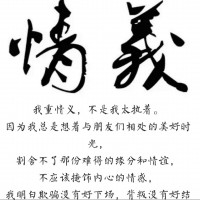 情義
我重情义，不是我太执着。
因为我总是想着与朋友们相处的美好时
光，
割舍不了那份难得的缘分和情谊，
不应该掩饰内心的情感，
我明白欺骗没有好下场，背叛没有好结